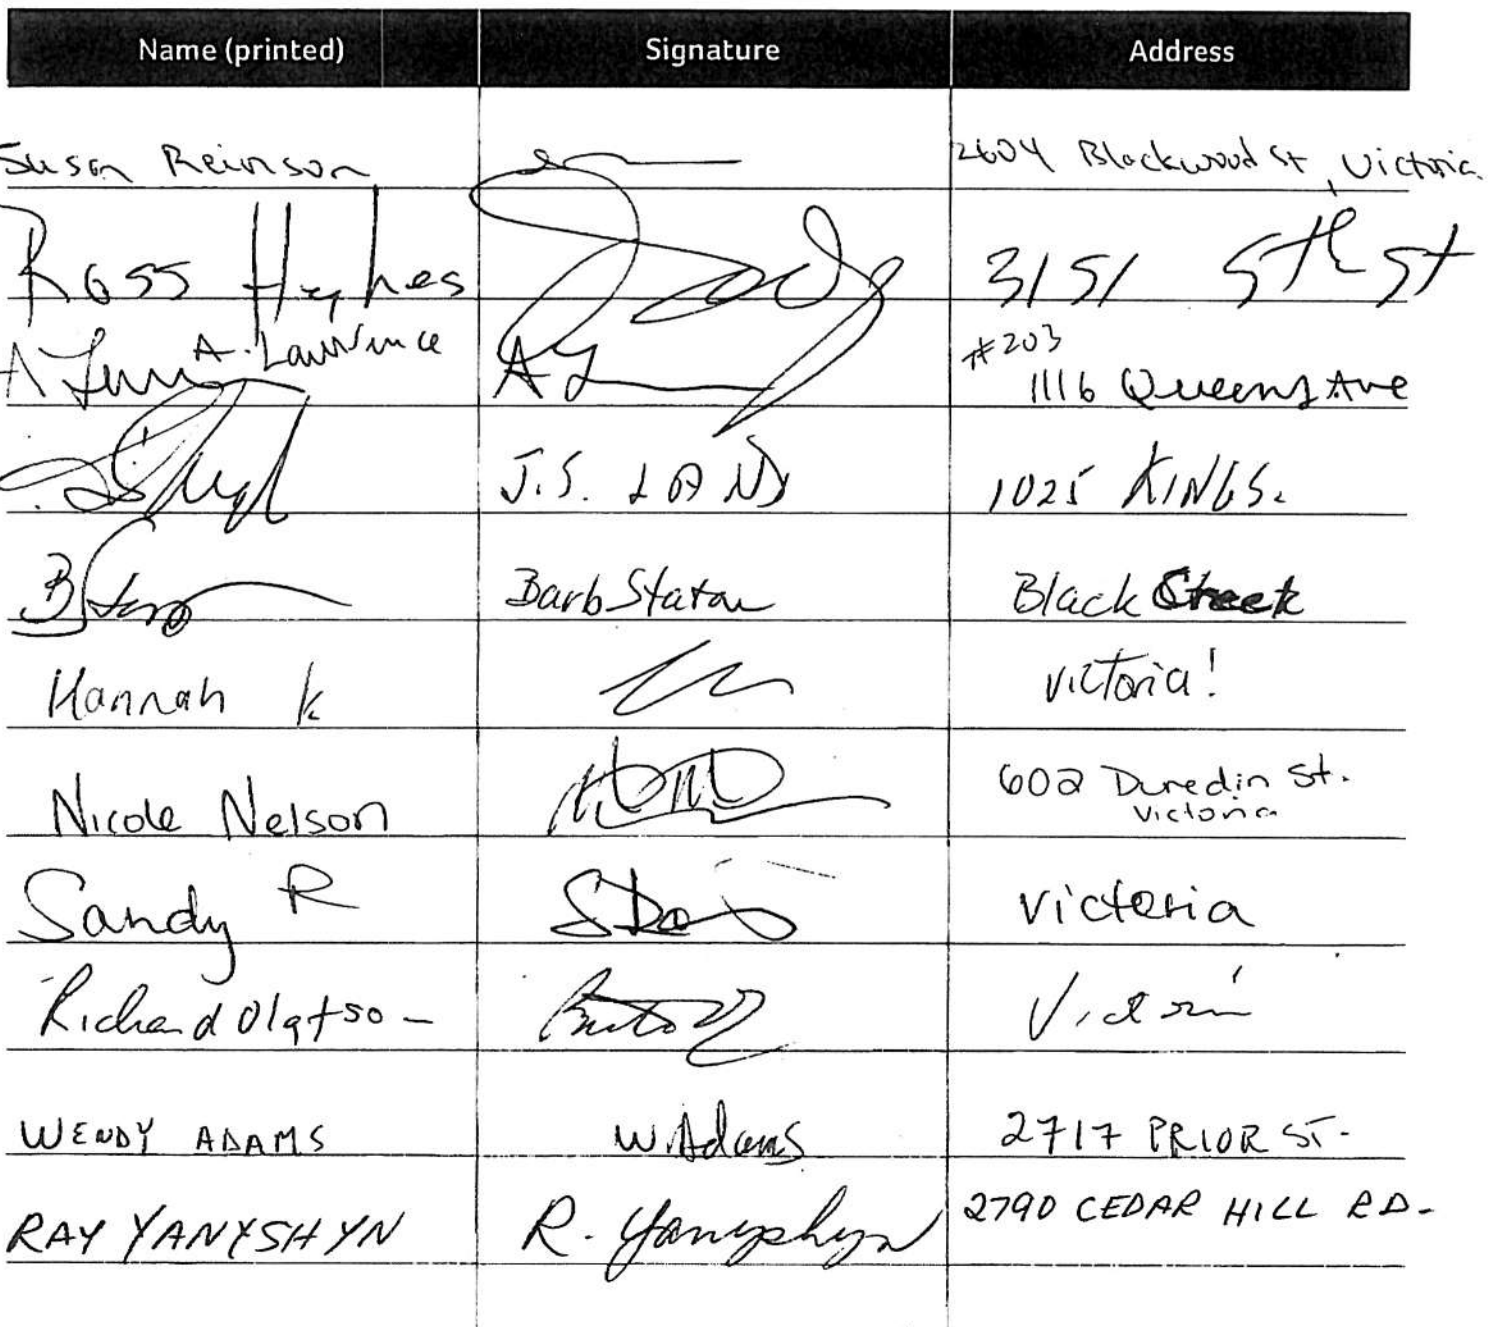 Name (printed) Signature Address
Susan Reinson 2604 Blackwood St, Victoria
Ross Hughes 3151 5th St
A. Lawrence AL #203
1116 Queens Ave
J.S. LAND 1025 KINGS.
Barb Staton Black Street
Hannah K Victoria!
Nicole Nelson 602 Dunedin St.
Victoria
Sandy R Victoria
Richard Olafson Victoria
WENDY ADAMS W. Adams 2717 PRIOR ST.
RAY YANYSHYN R. Yanyshyn 2790 CEDAR HILL RD.